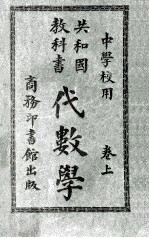 中學校用
共和國
教科書
代數學
卷上
商務印書館出版